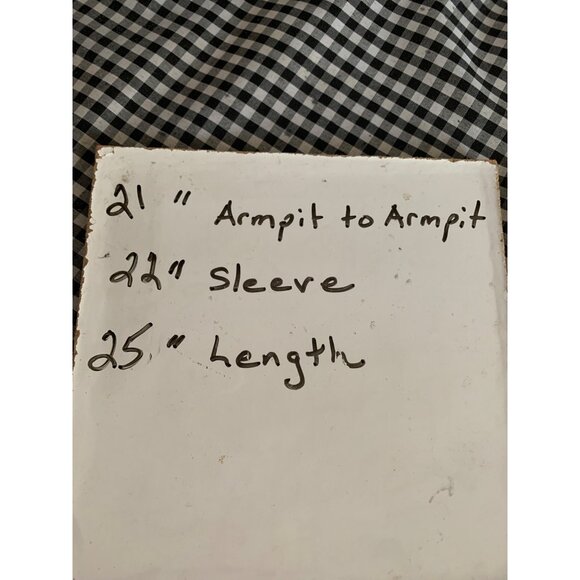 21 " Armpit to Armpit
22" Sleeve
25." Length